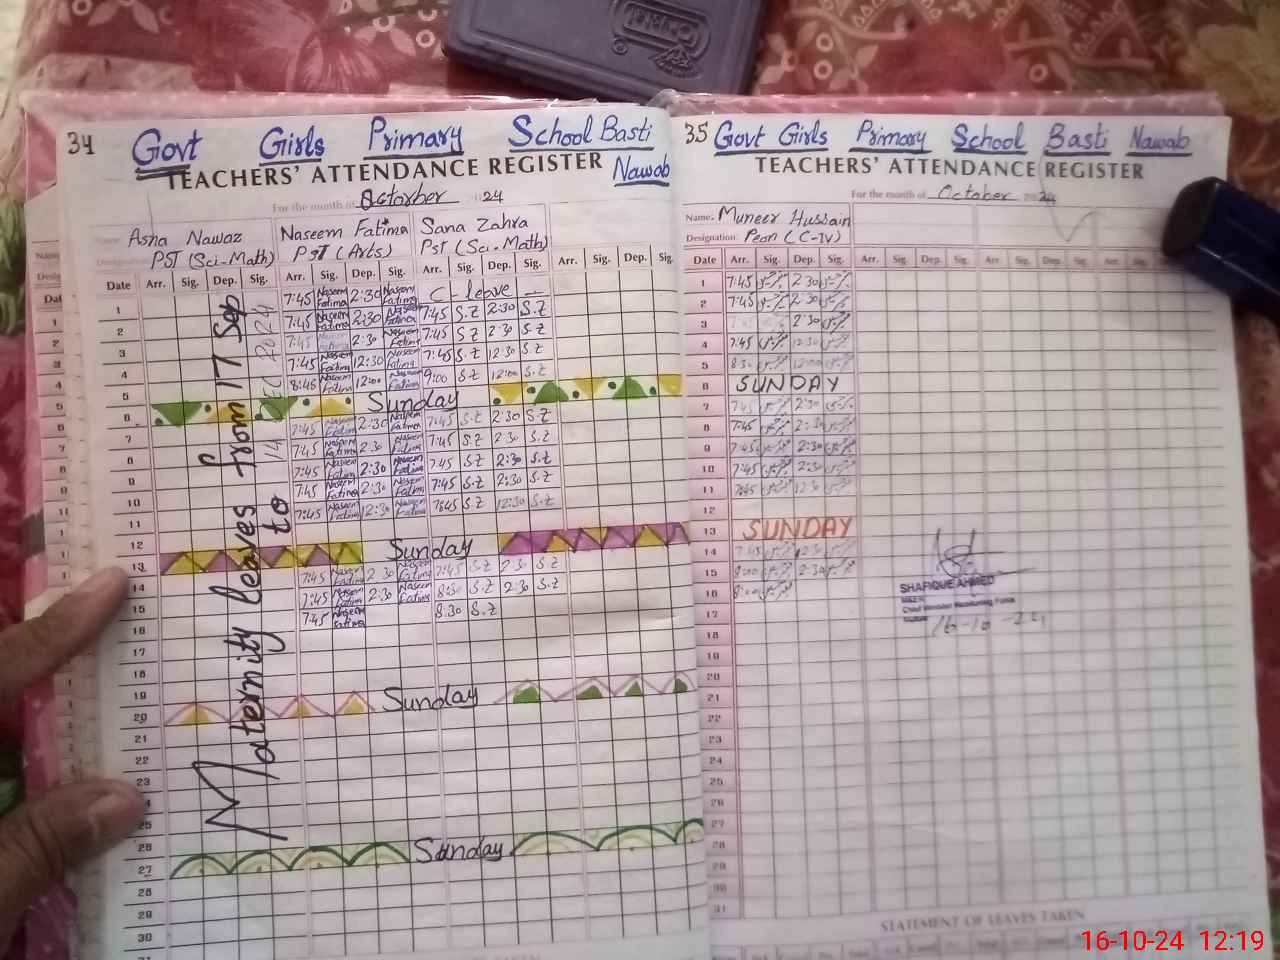 34
Govt Girls Primary School Basti
Nawab
TEACHERS' ATTENDANCE REGISTER
For the month of October 2024
Name: Asna Nawaz
Designation: PST (Sci-Math)
Naseem Fatima
PST (Arts)
Sana Zahra
PST (Sci-Math)
Date Arr. Sig. Dep. Sig. Arr. Sig. Dep. Sig. Arr. Sig. Dep. Sig. Arr. Sig. Dep. Sig.
Maternity leaves from 17 Sep
to 14 Dec 2024
1 7:45 Naseem Fatima 2:30 Naseem Fatima C-leave
2 7:45 Naseem Fatima 2:30 Naseem Fatima 7:45 S.Z 2:30 S.Z
3 7:45 Naseem Fatima 2:30 Naseem Fatima 7:45 S.Z 2:30 S.Z
4 7:45 Naseem Fatima 12:30 Naseem Fatima 7:45 S.Z 12:30 S.Z
5 8:45 Naseem Fatima 12:00 Naseem Fatima 9:00 S.Z 12:00 S.Z
6 Sunday
7 7:45 Naseem Fatima 2:30 Naseem Fatima 7:45 S.Z 2:30 S.Z
8 7:45 Naseem Fatima 2:30 Naseem Fatima 7:45 S.Z 2:30 S.Z
9 7:45 Naseem Fatima 2:30 Naseem Fatima 7:45 S.Z 2:30 S.Z
10 7:45 Naseem Fatima 2:30 Naseem Fatima 7:45 S.Z 2:30 S.Z
11 7:45 Naseem Fatima 12:30 Naseem Fatima 7:45 S.Z 12:30 S.Z
12
13 Sunday
14 7:45 Naseem Fatima 2:30 Naseem Fatima 7:45 S.Z 2:30 S.Z
15 7:45 Naseem Fatima 2:30 Naseem Fatima 8:30 S.Z 2:30 S.Z
16 7:45 Naseem Fatima 8:30 S.Z
17
18
19
20 Sunday
21
22
23
24
25
26
27 Sunday
28
29
30
35
Govt Girls Primary School Basti Nawab
TEACHERS' ATTENDANCE REGISTER
For the month of October 2024
Name. Muneer Hussain
Designation: Peon (C-IV)
Date Arr. Sig. Dep. Sig. Arr. Sig. Dep. Sig. Arr. Sig. Dep. Sig. Arr. Sig. Dep. Sig.
1 7:45 2:30
2 7:45 2:30
3 7:45 2:30
4 7:45 12:30
5 8:30 12:00
6 SUNDAY
7 7:45 2:30
8 7:45 2:30
9 7:45 2:30
10 7:45 2:30
11 7:45 12:30
12
13 SUNDAY
14 7:45 2:30
15 8:00 2:30
16 8:00
17
18
19
20
21
22
23
24
25
26
27
28
29
30
31
SHAFIQUE AHMED
Chief Minister Monitoring Force
16-10-24
STATEMENT OF LEAVES TAKEN
16-10-24 12:19